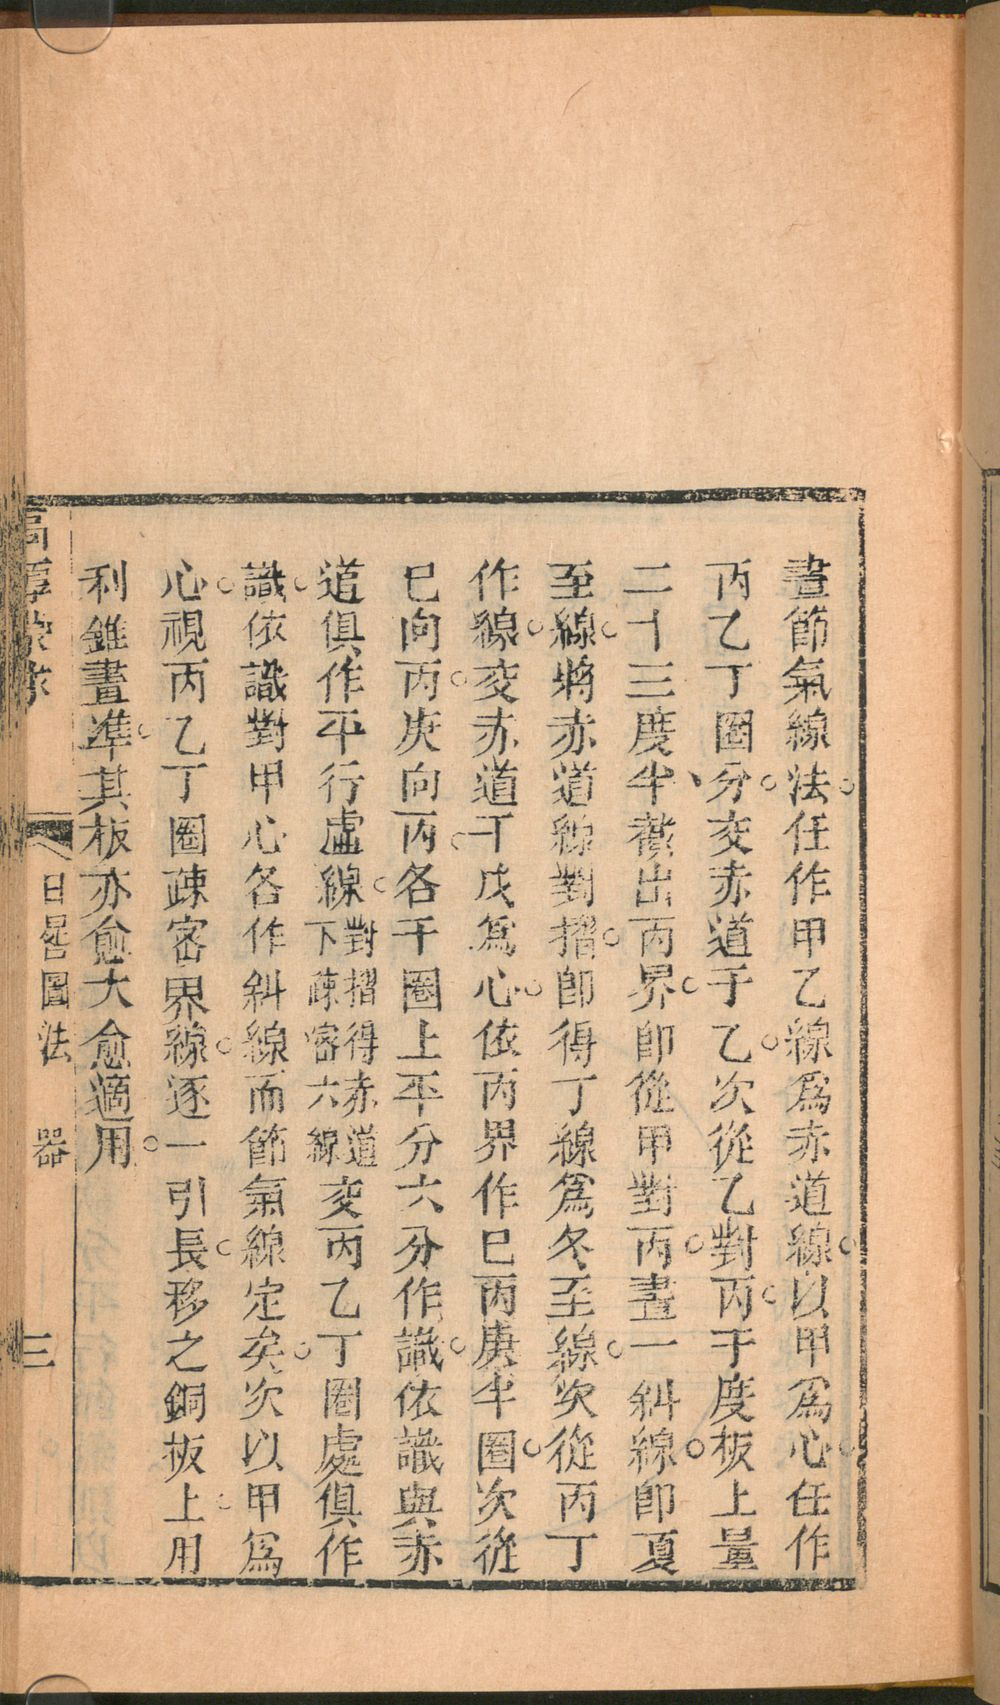 畫節氣線法。任作甲乙線爲赤道線。以甲爲心。任作
丙乙丁圈分。交赤道于乙。次從乙對丙。于度板上量
二十三度半、截出丙界。即從甲對丙。畫一糾線。即夏
至線。將赤道線對摺。即得丁線爲冬至線。次從丙丁
作線。交赤道于戊爲心。依丙界作巳丙庚半圈。次從
巳向丙。庚向丙。各于圈上平分六分作識。依識與赤
道俱作平行虛線。對摺得赤道下疎密六線交丙乙丁圈處俱作
識。依識對甲心各作糾線而節氣線定矣。次以甲爲
心。視丙乙丁圈疎密界線。逐一引長。移之銅板上。用
利錐畫準。其板亦愈大愈適用。
高厚蒙求
日晷圖法
器
三